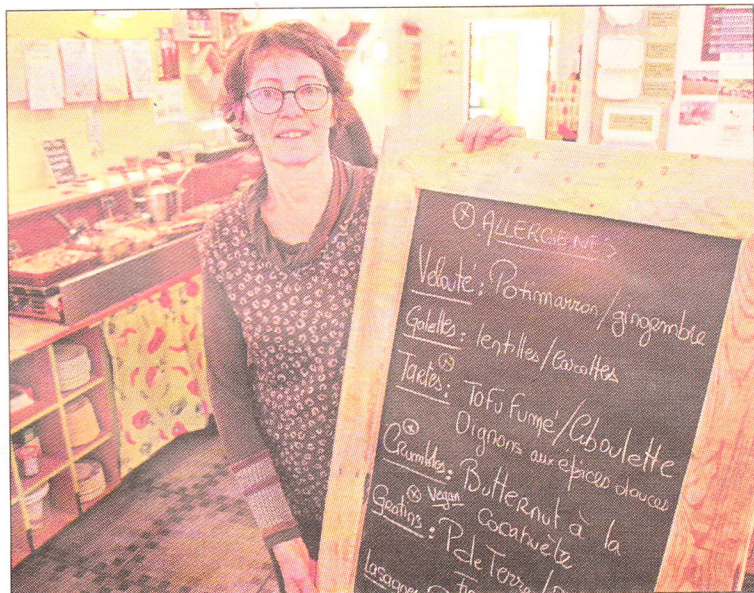 ⓧ ALLERGENES
Velouté : Potimarron/gingembre
Galettes : lentilles/carottes
ⓧ
Tartes : Tofu Fumé/Ciboulette
Oignons aux épices douces
ⓧ
Crumbles : Butternut à la
cacahuète
ⓧ Vegan
Gratins : P de Terre/
Lasagnes